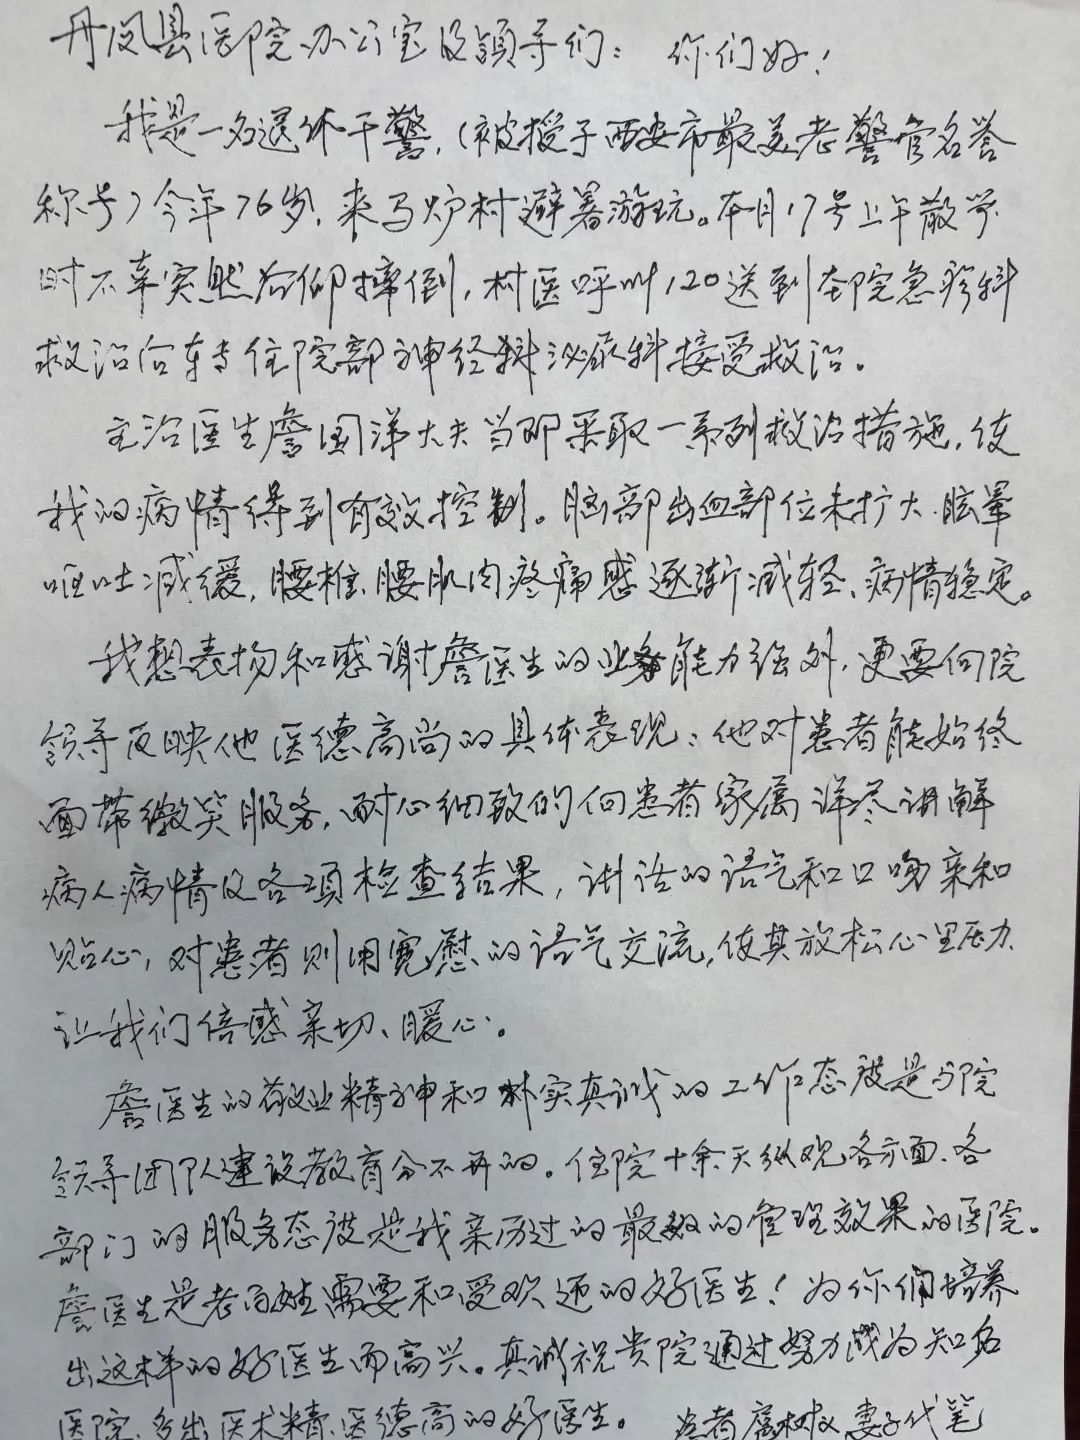 丹凤县医院办公室及领导们： 你们好！
我是一名退休干警，（被授于西安市最美老警官名誉
称号）今年76岁，来马炉村避暑游玩。本月17号上午散学
时不幸突然后仰摔倒，村医呼叫120送到本院急疹科
救治后转专住院部神经科泌尿科接受救治。
主治医生詹国洋大夫当即采取一系列救治措施，使
我的病情得到有效控制。脑部出血部位未扩大、眩晕
呕吐减缓，腰椎、腰肌肉疼痛感逐渐减轻、病情稳定。
我想表扬和感谢詹医生的业务能力强外，更要向院
领导反映他医德高尚的具体表现：他对患者能始终
面带微笑服务，耐心细致的向患者家属详尽讲解
病人病情及各项检查结果，讲话的语气和口吻亲和
贴心，对患者则用宽慰的语气交流，使其放松心里压力、
让我们倍感亲切、暖心。
詹医生的敬业精神和朴实真诚的工作态度是与院
领导团队建设教育分不开的。住院十余天纵观各方面、各
部门的服务态度是我亲历过的最好的管理效果的医院。
詹医生是老百姓需要和受欢迎的好医生！为你们培养
出这样的好医生而高兴。真诚祝贵院通过努力成为知名
医院，多出医术精、医德高的好医生。 患者 妻子代笔